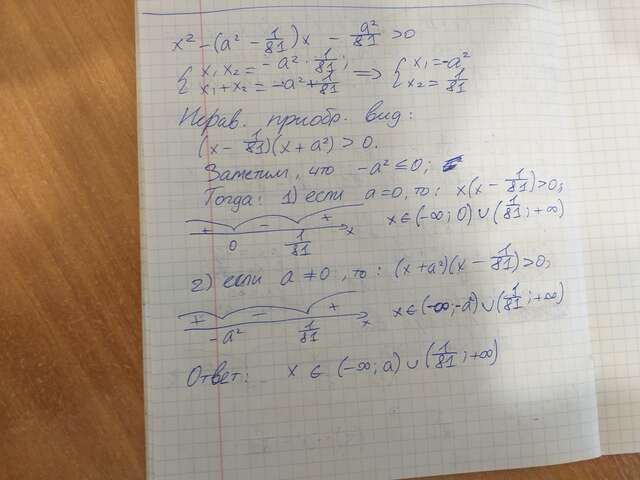 x² - (a² - 1/81)x - a²/81 > 0
{ x₁x₂ = -a² · 1/81; x₁+x₂ = -a² + 1/81 => { x₁ = -a² x₂ = 1/81
Нерав. приобр. вид:
(x - 1/81)(x + a²) > 0.
Заметим, что -a² ≤ 0;
Тогда: 1) если a=0, то: x(x - 1/81) > 0;
+ - + x x ∈ (-∞; 0) ∪ (1/81; +∞)
0 1/81
2) если a ≠ 0, то: (x + a²)(x - 1/81) > 0;
+ - + x x ∈ (-∞; -a²) ∪ (1/81; +∞)
-a² 1/81
Ответ: x ∈ (-∞; a) ∪ (1/81; +∞)